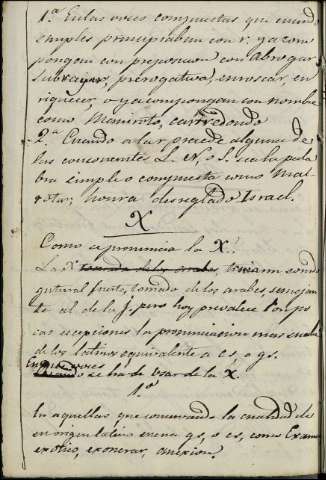 1.ª En las voces compuestas que siendo
simples principiaban con r. ya com
pongan con preposicion con Abrogar
Subrayar, prerogativa, enroscar en
riquecer, o ya compongan con nombre
como Maniroto, cariredondo
2.ª Cuando a la r precede alguna de
las consonantes L. N, o S. sea la pala
bra simple o compuesta como Mal
rotar; honra desreglado Israel.
X
Como se pronuncia la X.
La X tomada de los arabes, tenia un sonido
gutural fuerte, tomado de los arabes, semejante
al de la j. pero hoy prevalece con po
cas escepciones la pronunciacion mas suave
de los latinos equivalente a cs, o gs.
En que voces
se ha de usar de la X.
1.º
En aquellas que conservando la cualidad de
su origen latino suena gs, o cs, como Examen
exotico, exonerar, anexion.